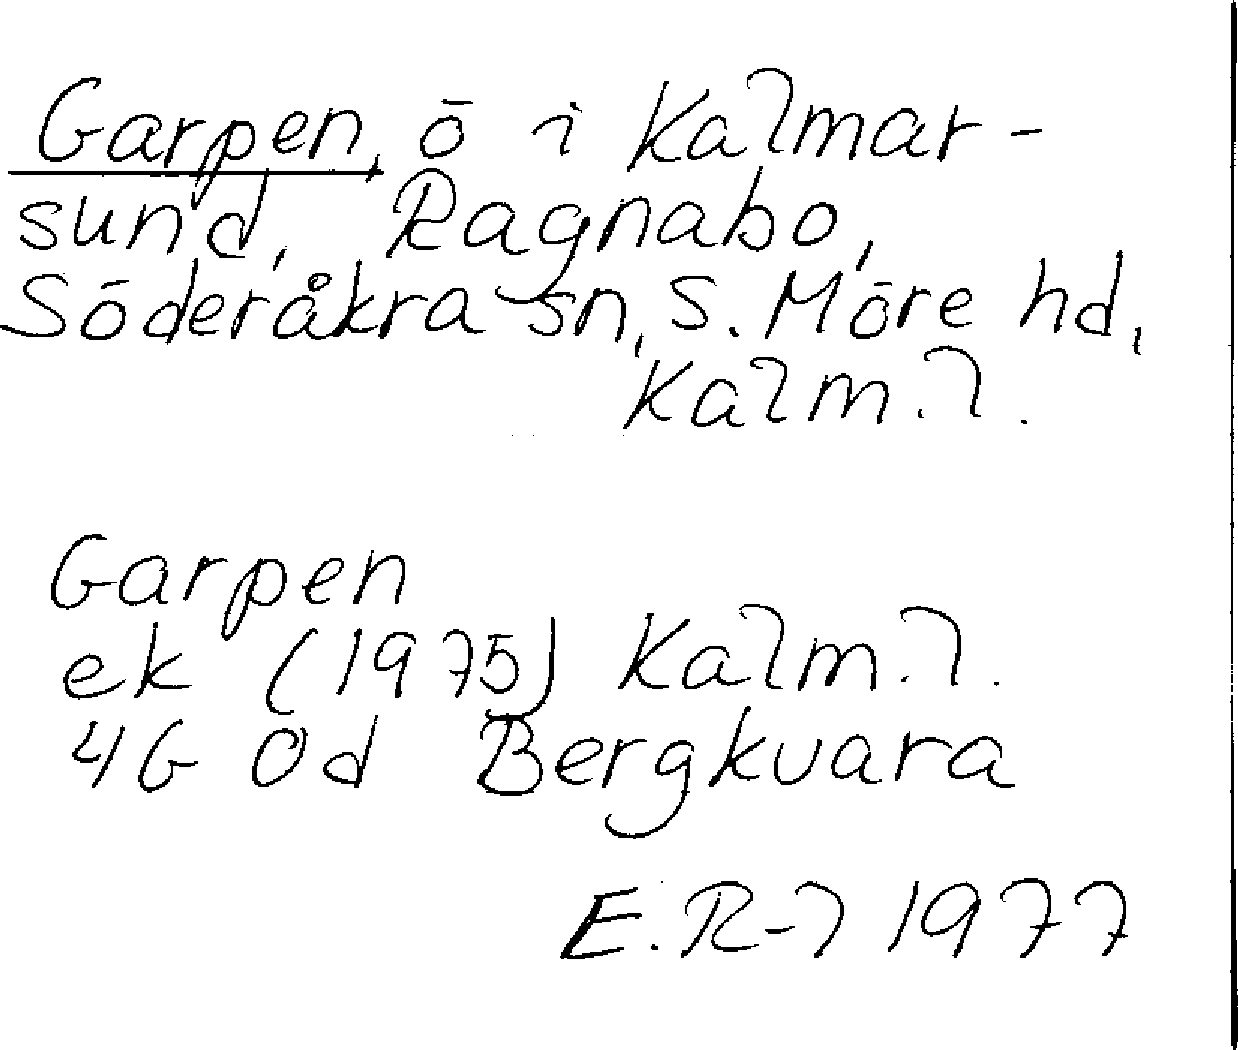 Garpen, ö i Kalmar-
sund, Ragnabo,
Söderåkra sn, S. Möre hd,
Kalm. l.
Garpen
ek (1975) Kalm. l.
4G Öd Bergkvara
E. R-l 1977